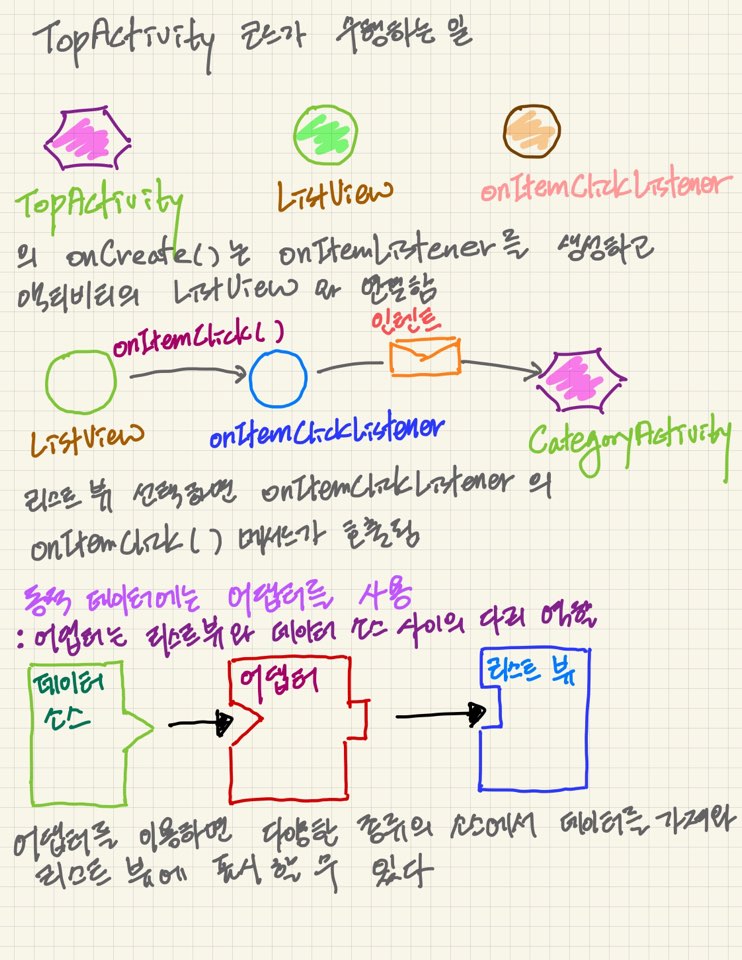 TopActivity 코드가 수행하는 일
TopActivity
ListView
onItemClickListener
의 onCreate()는 onItemListener를 생성하고
액티비티의 ListView 와 연결함
onItemClick()
인텐트
ListView
onItemClickListener
CategoryActivity
리스트 뷰 선택하면 onItemClickListener 의
onItemClick() 메서드가 호출됨
동적 데이터에는 어댑터를 사용
: 어댑터는 리스트뷰와 데이터 소스 사이의 다리 역할
데이터
소스
어댑터
리스트 뷰
어댑터를 이용하면 다양한 종류의 소스에서 데이터를 가져와
리스트 뷰에 표시 할 수 있다